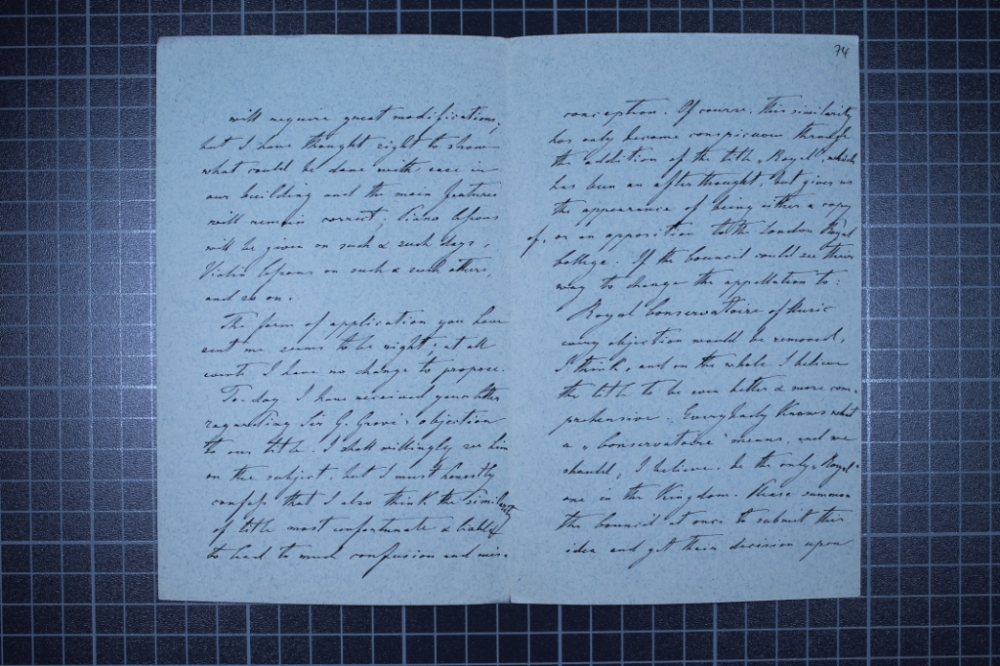 will require great modifications,
but I have thought right to show
what could be done with ease in
our building and the main features
will remain correct; Piano lessons
will be given on such & such days,
Violin lessons on such & such others,
and so on.
The form of application you have
sent me seems to be right; at all
events I have no change to propose.
To-day I have received your letter
regarding Sir G. Grove's objection
to our title. I shall willingly see him
on the subject, but I must honestly
confess that I also think the similarity
of title most unfortunate & liable
to lead to much confusion and mis-
74
conception. Of course, this similarity
has only become conspicuous through
the addition of the title "Royal", which
has been an afterthought, but gives us
the appearance of being either a copy
of, or an opposition to the London Royal
College. If the Council could see their
way to change the appellation to:
Royal Conservatoire of Music
every objection would be removed,
I think, and on the whole I believe
the title to be even better & more com-
prehensive. Everybody knows what
a "Conservatoire" means, and we
should, I believe, be the only "Royal"
one in the Kingdom. Please summon
the Council at once to submit this
idea and get their decision upon